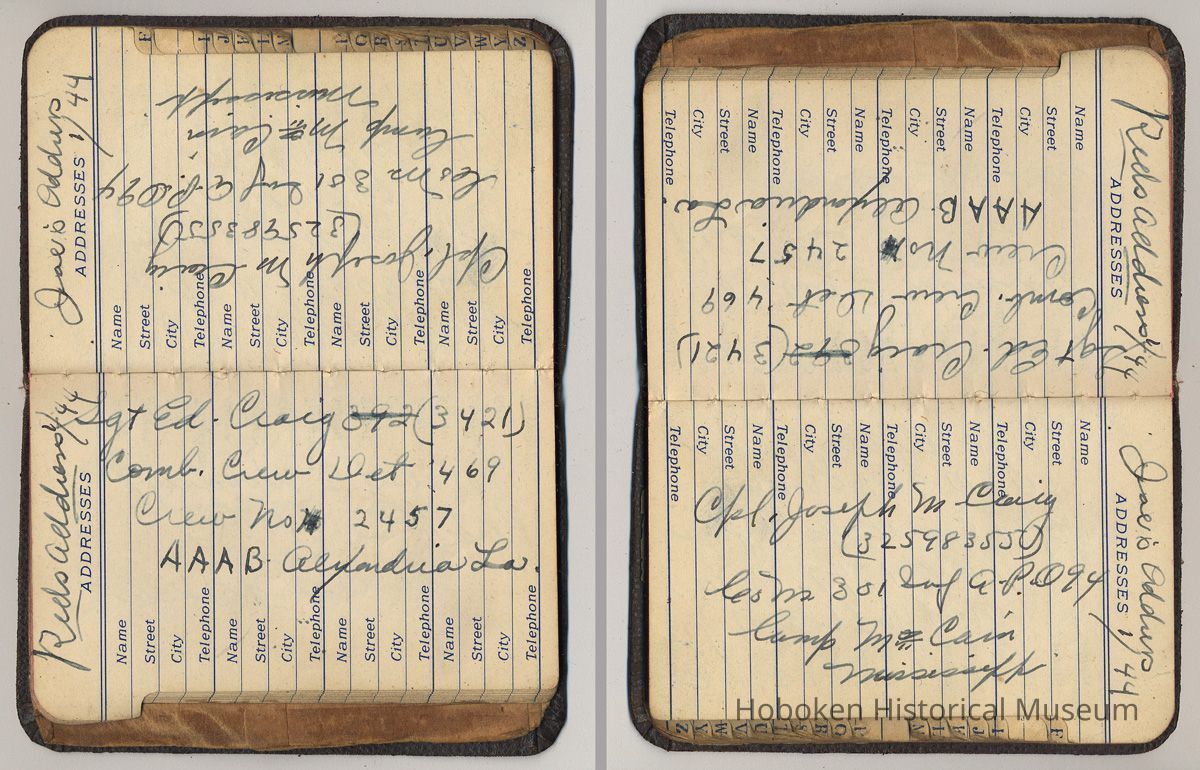 Joe's Address 1/44
ADDRESSES
Name
Street
City
Telephone
Name
Street
City
Telephone
Name
Street
City
Telephone
Name
Street
City
Telephone
Cpl. Joseph M Craig
(32598355)
Co M 301 Inf A.P.O 94
Camp Mc Cain,
Mississippi
Reds Address 1/44
ADDRESSES
Sgt Ed. Craig 392 (3421)
Comb. Crew Det 469
Crew No 2457
AAAB Alexandria La.
Name
Street
City
Telephone
Name
Street
City
Telephone
Name
Street
City
Telephone
Name
Street
City
Telephone
Reds Address 1/44
ADDRESSES
Name
Street
City
Telephone
Name
Street
City
Telephone
Name
Street
City
Telephone
Name
Street
City
Telephone
Sgt Ed. Craig 392 (3421)
Comb. Crew Det 469
Crew No 2457
AAAB Alexandria La.
Joe's Address 1/44
ADDRESSES
Name
Street
City
Telephone
Name
Street
City
Telephone
Name
Street
City
Telephone
Name
Street
City
Telephone
Cpl. Joseph M Craig
(32598355)
Co M 301 Inf A.P.O 94
Camp Mc Cain,
Mississippi
Hoboken Historical Museum